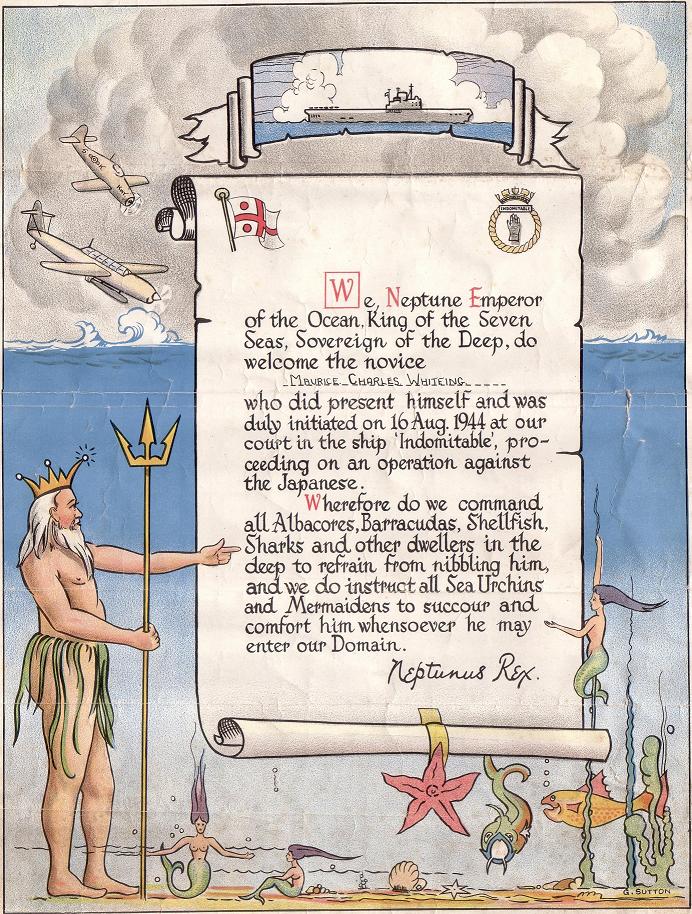 INDOMITABLE
We, Neptune Emperor
of the Ocean, King of the Seven
Seas, Sovereign of the Deep, do
welcome the novice
Maurice Charles Whiteing
who did present himself and was
duly initiated on 16 Aug. 1944 at our
court in the ship 'Indomitable', pro-
ceeding on an operation against
the Japanese.
Wherefore do we command
all Albacores, Barracudas, Shellfish,
Sharks and other dwellers in the
deep to refrain from nibbling him,
and we do instruct all Sea Urchins
and Mermaidens to succour and
comfort him whensoever he may
enter our Domain.
Neptunus Rex.
G. SUTTON